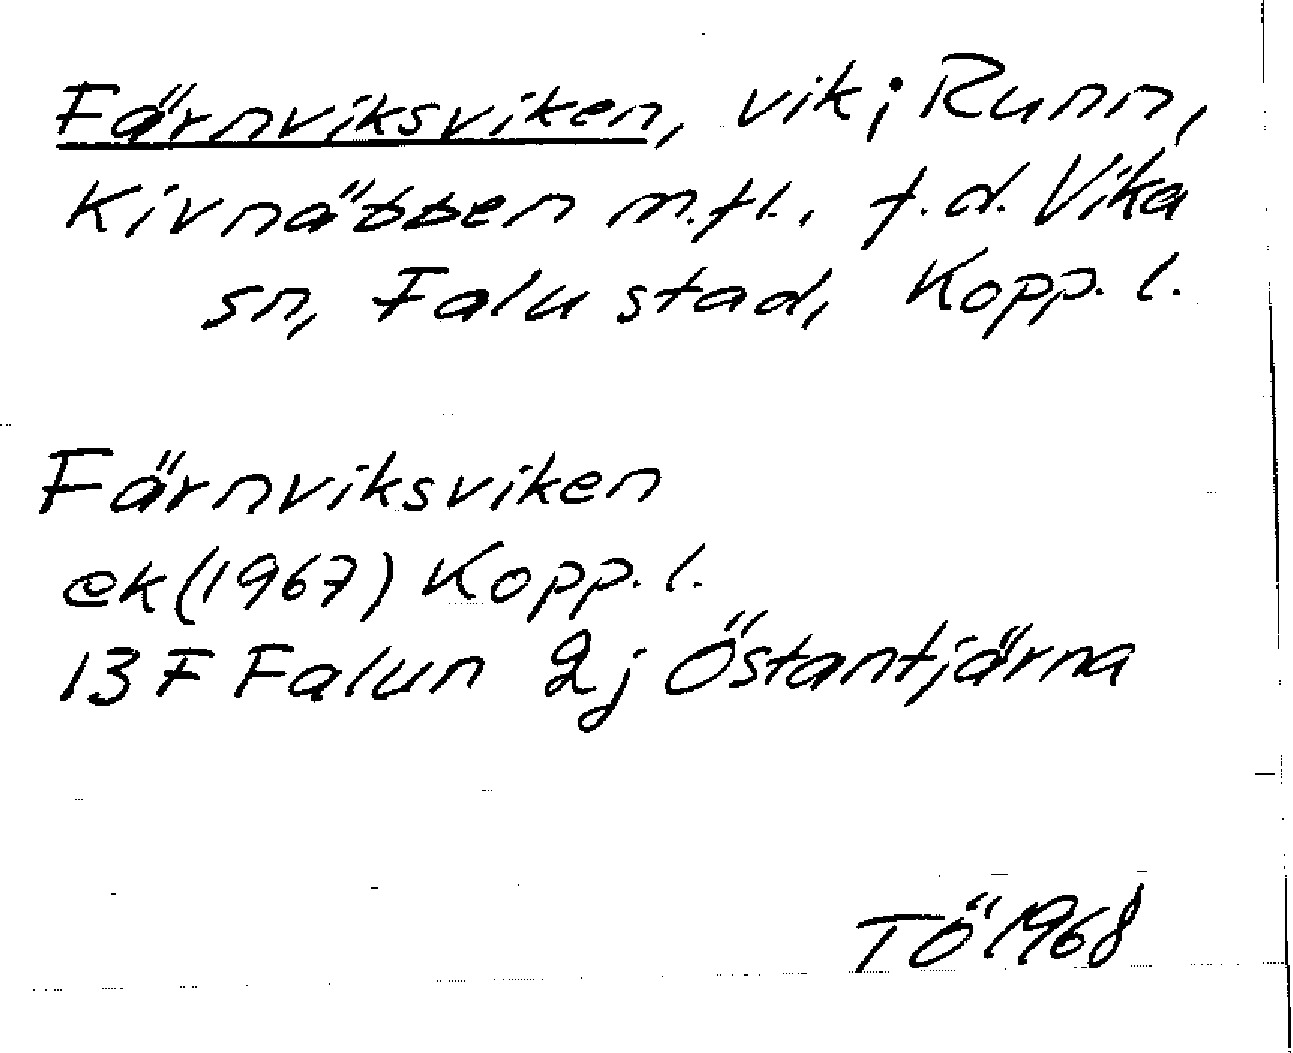 Färnviksviken, vik i Runn,
Kivnäbben m.fl., f.d. Vika
sn, Falu stad, Kopp. l.
Färnviksviken
ek (1967) Kopp. l.
13 F Falun 2j Östantjärna
TÖ 1968